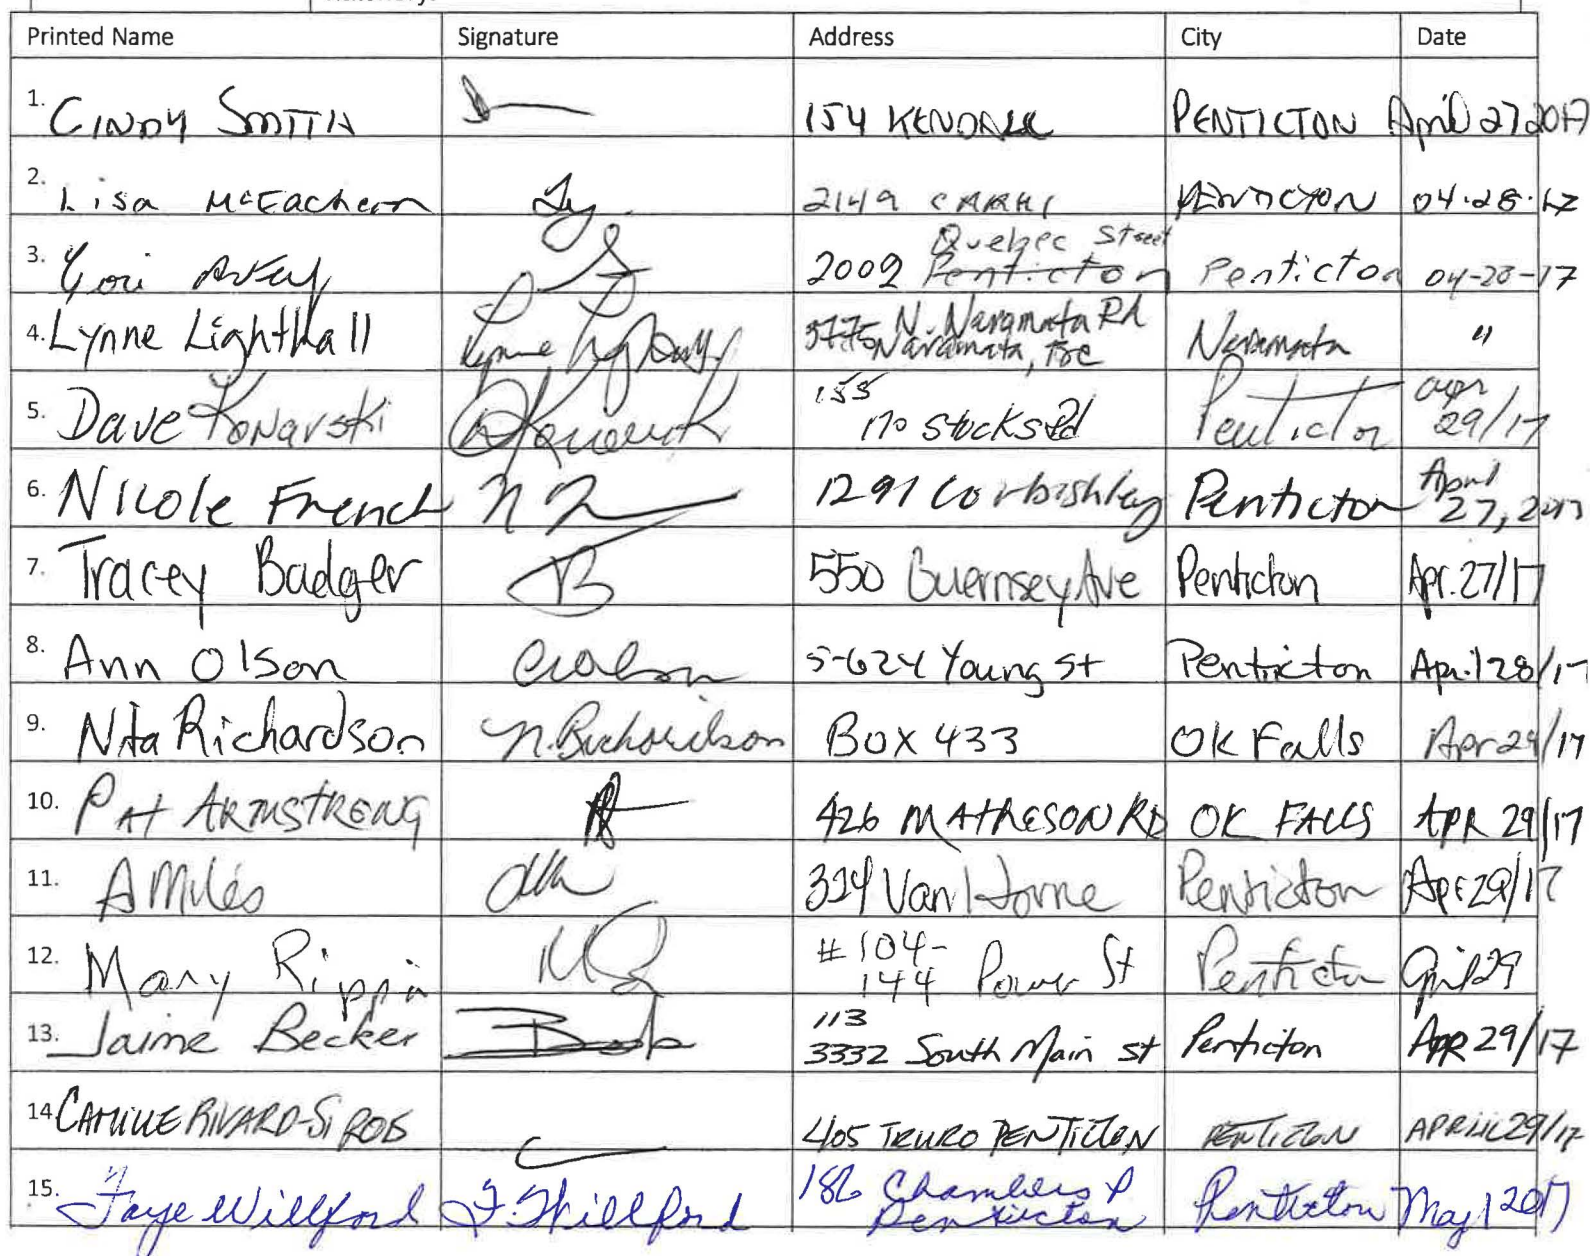 Printed Name Signature Address City Date
1. CINDY SMITH 154 KENDALL PENTICTON April 27 2017
2. Lisa McEachern 2149 PENTICTON 04.28.17
Quebec Street
3. 2002 Penticton Penticton 04-28-17
4. Lynne Lighthall N. Naramata Rd Naramata "
Naramata, BC
155 apr
5. Dave Konarski 170 Stocks Rd Penticton 29/17
6. Nicole French 1291 Corbishley Penticton April
27, 2017
7. Tracey Badger B 550 Guernsey Ave Penticton Apr. 27/17
8. Ann Olson 5-624 Young St Penticton April 28/17
9. Nita Richardson N. Richardson Box 433 OK Falls Apr 29/17
10. PAT ARMSTRONG 426 MATHESON RD OK FALLS APR 29/17
11. A Miles 324 Van Horne Penticton Apr 29/17
#104-
12. Mary Rippin 144 Power St Penticton April 29
113
13. Jaime Becker 3332 South Main St Penticton Apr 29/17
14. CAMILLE RIVARD-SIROIS 405 TRURO PENTICTON PENTICTON APRIL 29/17
15. Faye Willford F. Willford 186 Chambers P Penticton May 1 2017
Penticton